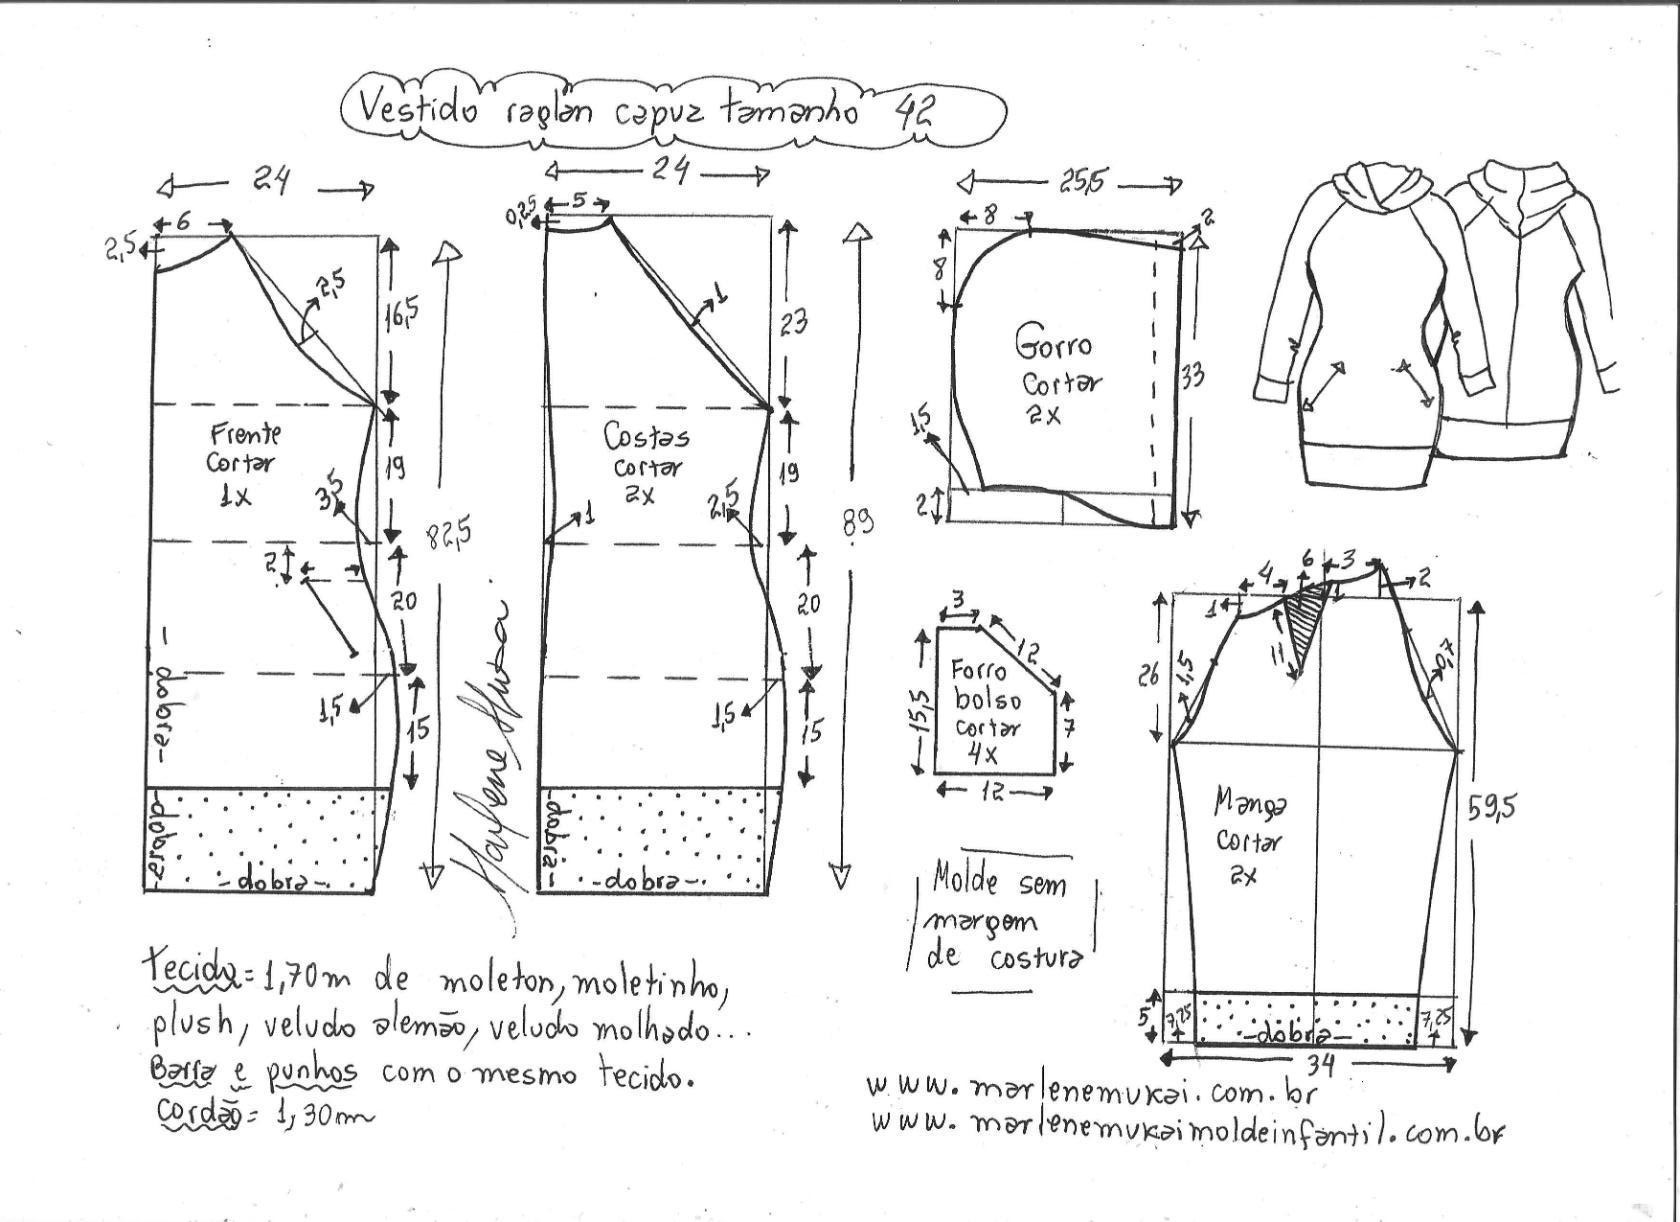 Vestido raglan capuz tamanho 42
24
6
2,5
2,5
16,5
Frente
cortar
1x
19
3,5
82,5
2
20
-dobra-
1,5
15
-dobra-
-dobra-
24
0,25
5
1
23
Costas
cortar
2x
19
2,5
1
89
20
1,5
15
-dobra-
-dobra-
25,5
8
2
8
Gorro
cortar
2x
33
1,5
2
3
12
15,5
Forro
bolso
cortar
4x
7
12
Molde sem
margem
de costura
6
4
3
1
1
2
26
1,5
11
0,7
Manga
cortar
2x
59,5
5
7,25
-dobra-
7,25
34
Tecido=1,70m de moleton, moletinho,
plush, veludo alemão, veludo molhado...
Barra e punhos com o mesmo tecido.
Cordão= 1,30m
www.marlenemukai.com.br
www.marlenemukaimoldeinfantil.com.br